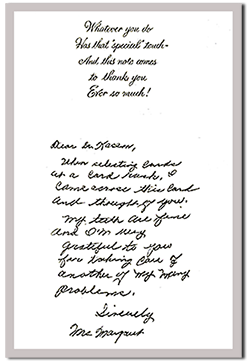 Whatever you do
Has that "special" touch-
And this note comes
to thank you
Ever so much!
Dear Dr. Kazemi,
When selecting cards
at a card rack, I
came across this card
and thought of you.
My teeth are fine
and I'm very
grateful to you
for taking care of
another of my many
problems.
Sincerely
Mrs. Margaret